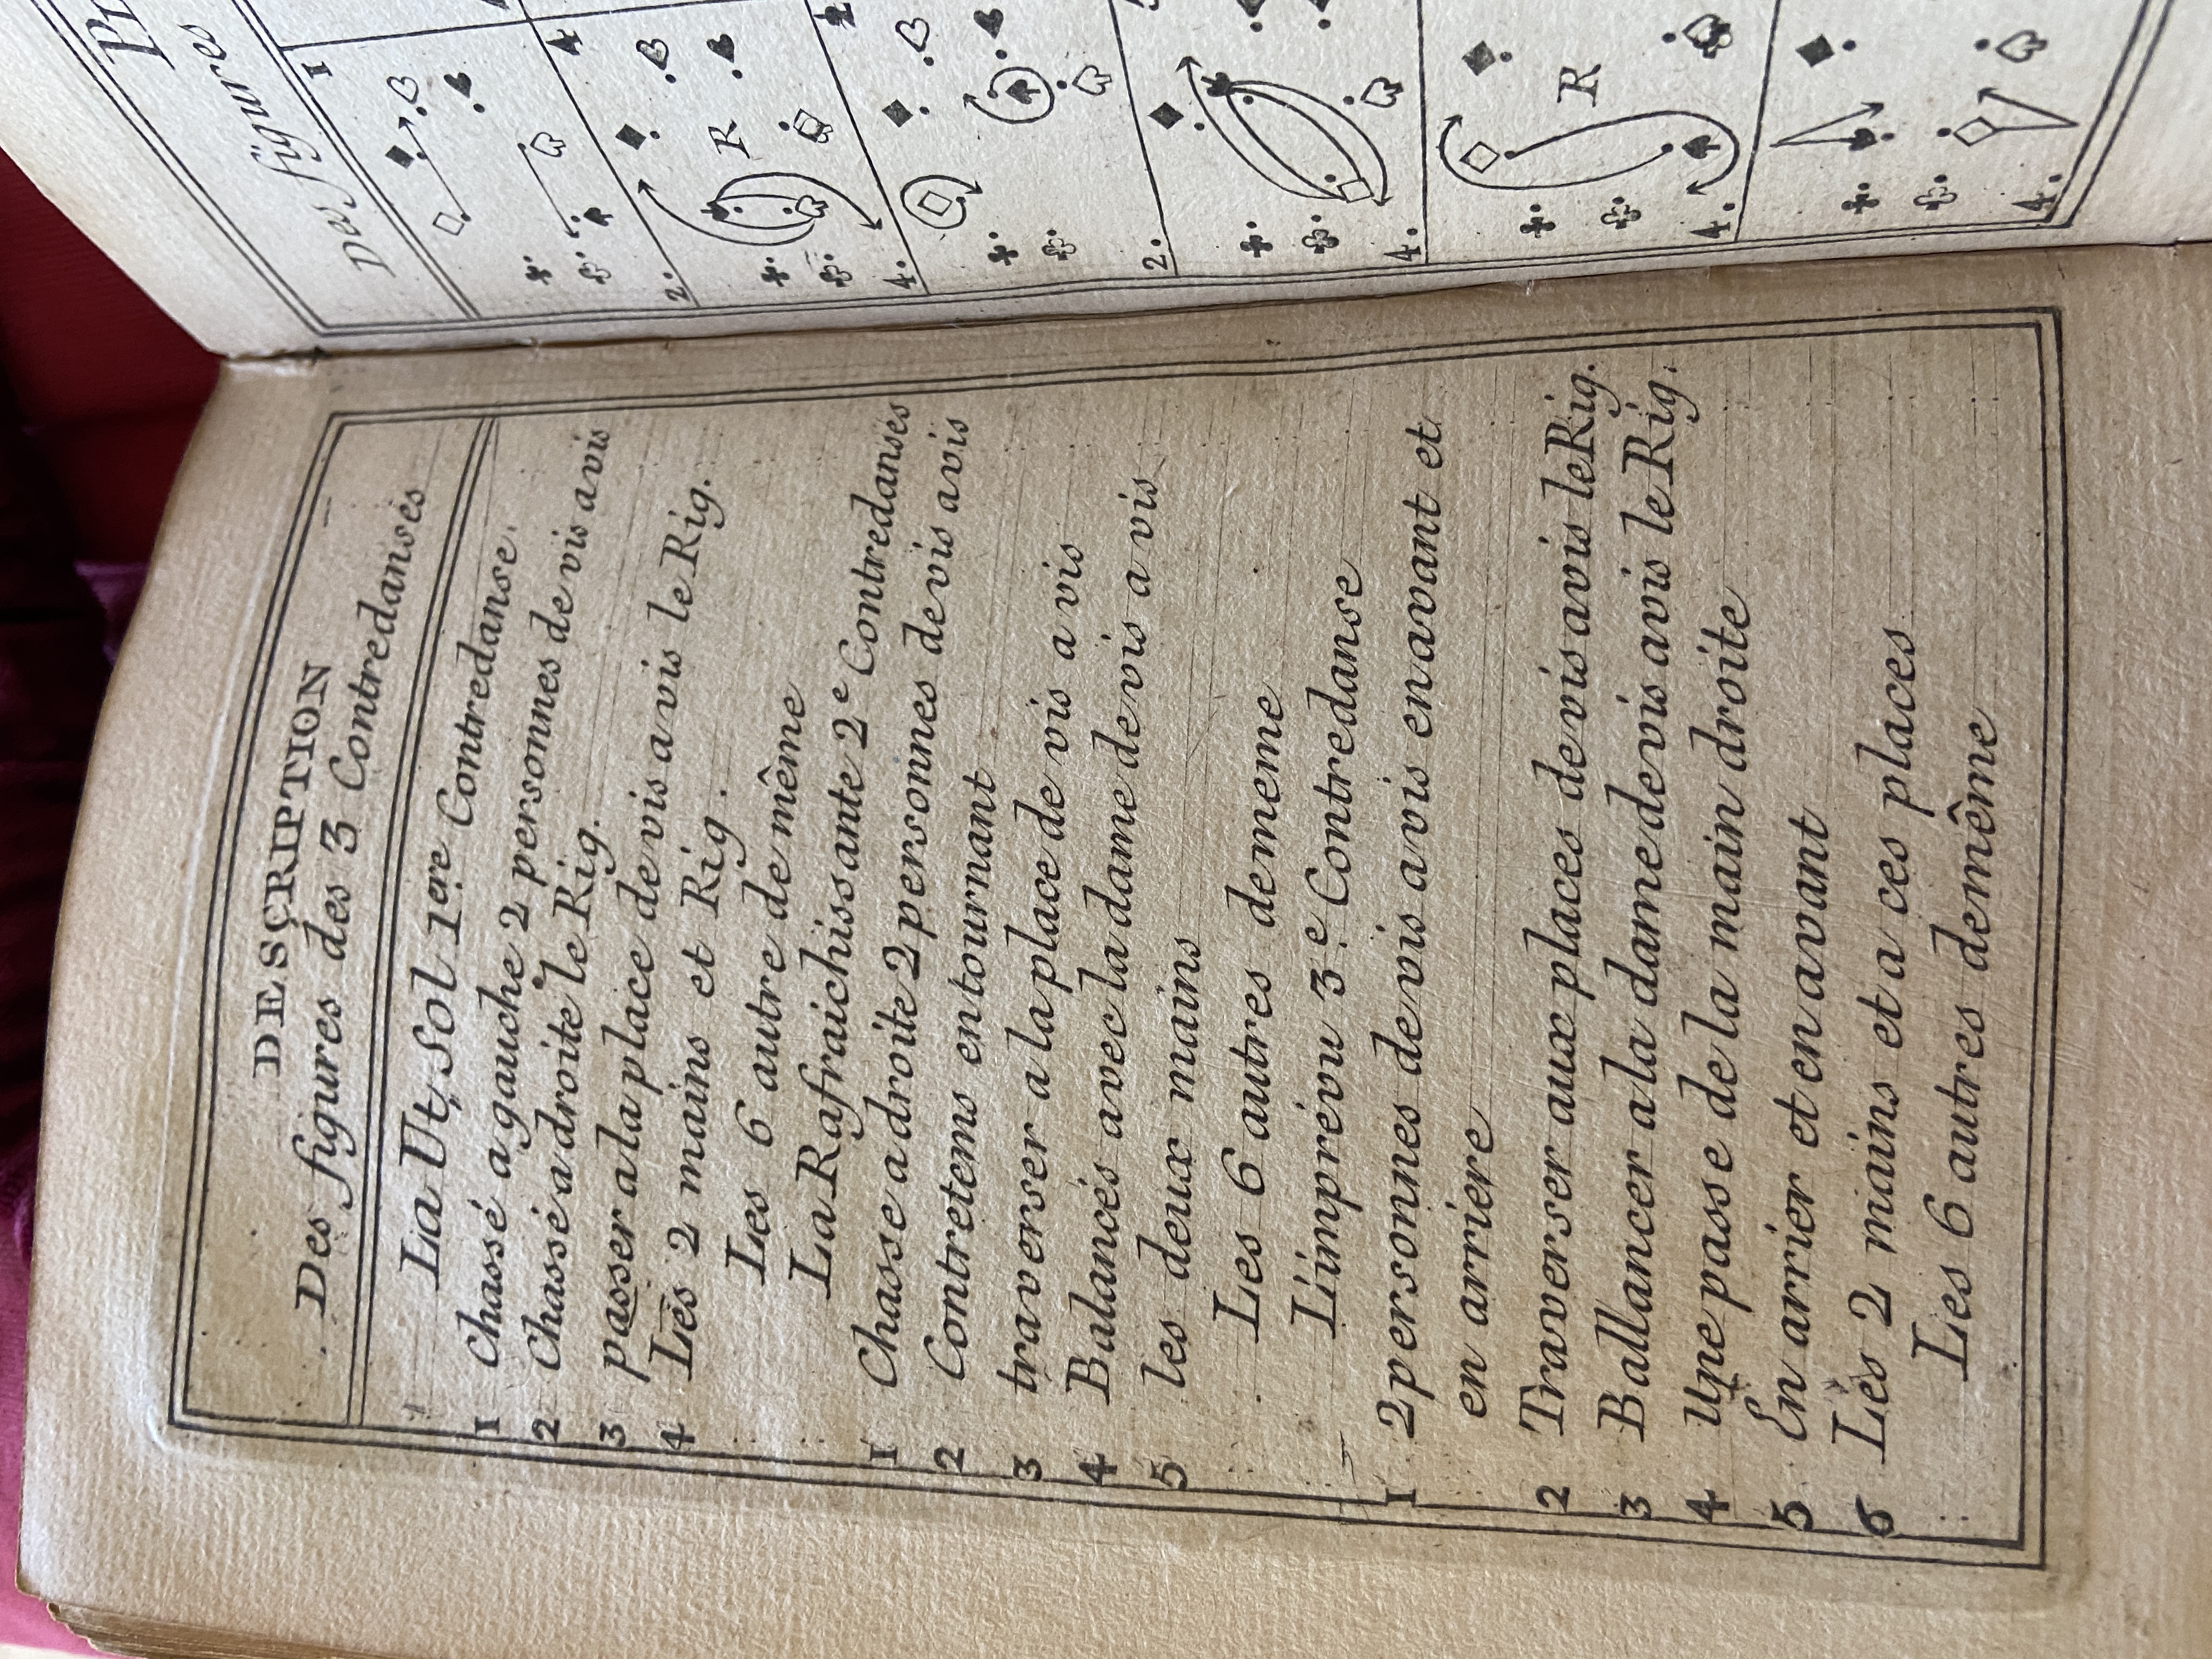 DESCRIPTION
Des figures des 3 Contredanses
La Ut, Sol 1ere Contredanse.
1 Chassé a gauche 2 personnes de vis avis
2 Chassé a droite le Rig.
3 passer a la place de vis a vis le Rig.
4 Les 2 mains et Rig.
Les 6 autre de même
La Rafraichissante 2e Contredanses
1 Chasse a droite 2 personnes de vis avis
2 Contretems en tournant
3 traverser a la place de vis a vis
4 Balancés avec la dame de vis a vis
5 les deux mains
Les 6 autres de meme
L'imprévu 3e Contredanse
1 2 personnes de vis avis en avant et
en arriere
2 Traverser aux places de vis avis le Rig.
3 Ballancer a la dame de vis avis le Rig.
4 Une passe de la main droite
5 En arrier et en avant
6 Les 2 mains et a ces places
Les 6 autres de même
Des figures
1
2.
4
R
4.
2.
4.
R
4.
4.